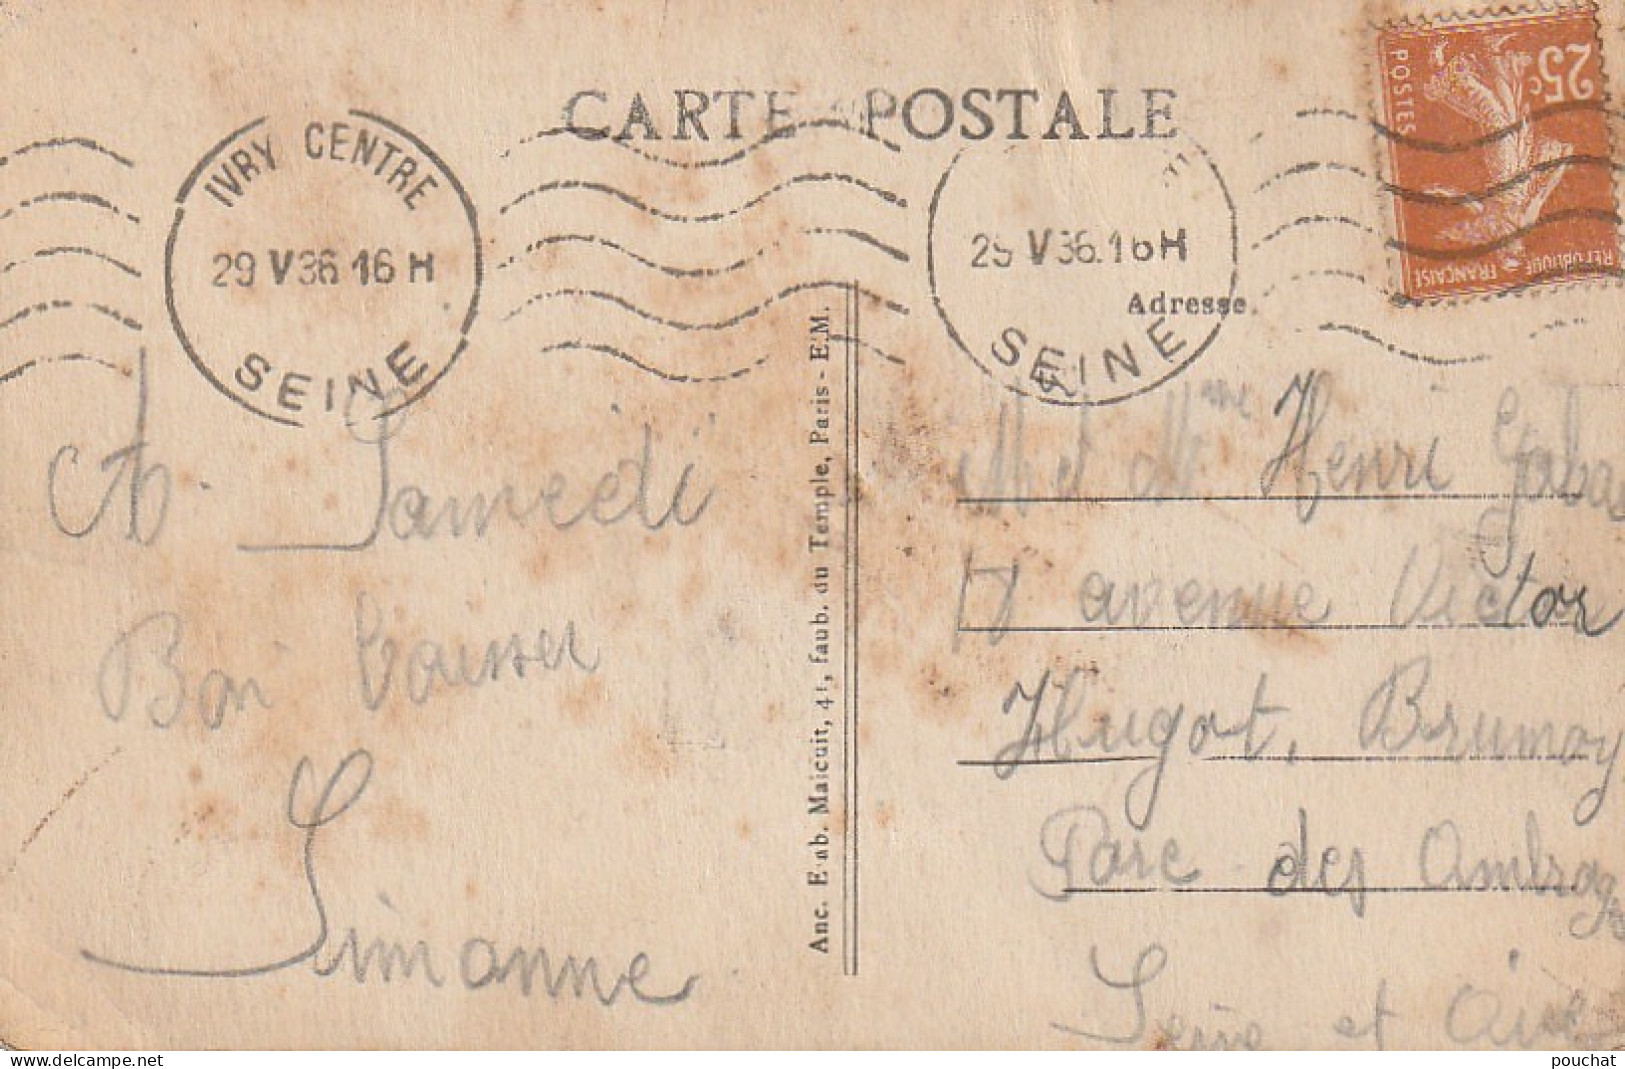 CARTE POSTALE
IVRY CENTRE
29 V 36 16 H
SEINE
29 V 36. 16 H
SEINE
25c
POSTES
REPUBLIQUE FRANÇAISE
Adresse
A Samedi
Bon baiser
Simonne
Anc. Etab. Malcuit, 41, faub. du Temple, Paris - E.M.
M et Mme Henri Gabas
17 avenue Victor
Hugot, Brunoy
Parc des
Seine et Oise
pouchat
delcampe.net